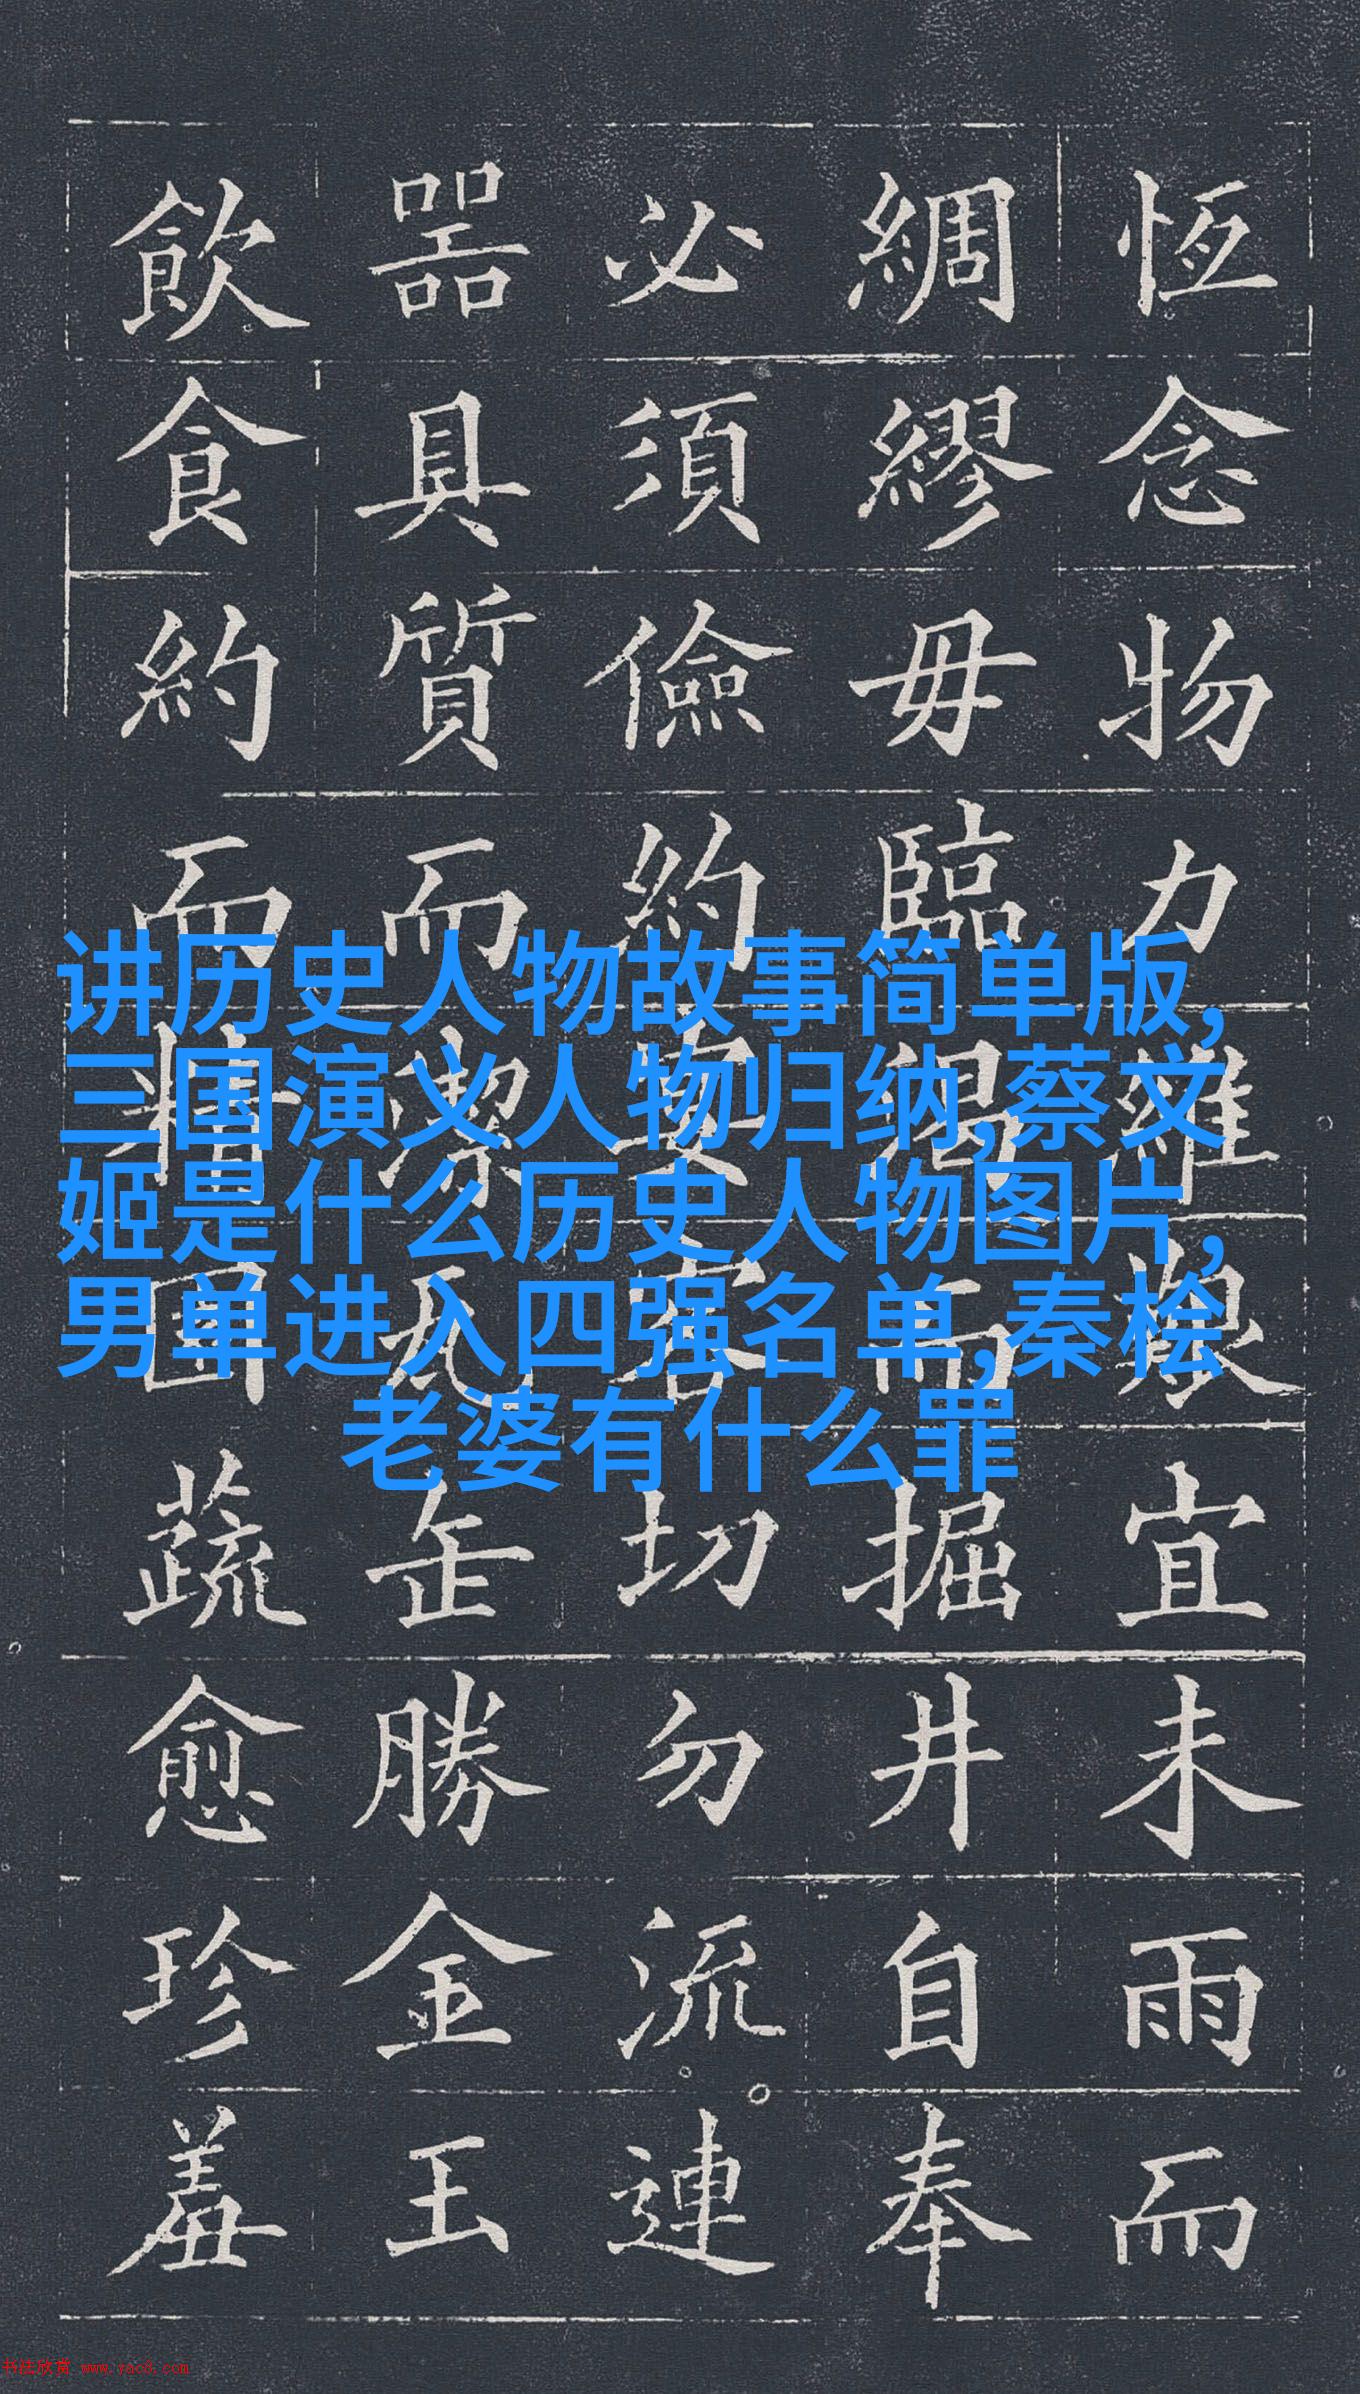 恆念物力維艱宜未雨而
綢繆毋臨渴而掘井自奉
必須儉約宴客切勿流連
噐具質而潔瓦缶勝金玉
飲食約而精園蔬愈珍羞
讲历史人物故事简单版,
三国演义人物归纳,蔡文
姬是什么历史人物图片,
男单进入四强名单,秦桧
老婆有什么罪
书法欣赏 www.yac8.com